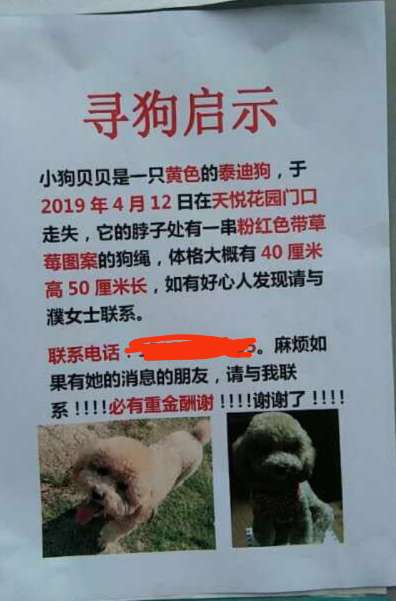 寻狗启示
小狗贝贝是一只黄色的泰迪狗，于
2019年4月12日在天悦花园门口
走失，它的脖子处有一串粉红色带草
莓图案的狗绳，体格大概有40厘米
高50厘米长，如有好心人发现请与
濮女士联系。
联系电话：。麻烦如
果有她的消息的朋友，请与我联
系!!!!必有重金酬谢!!!!谢谢了!!!!